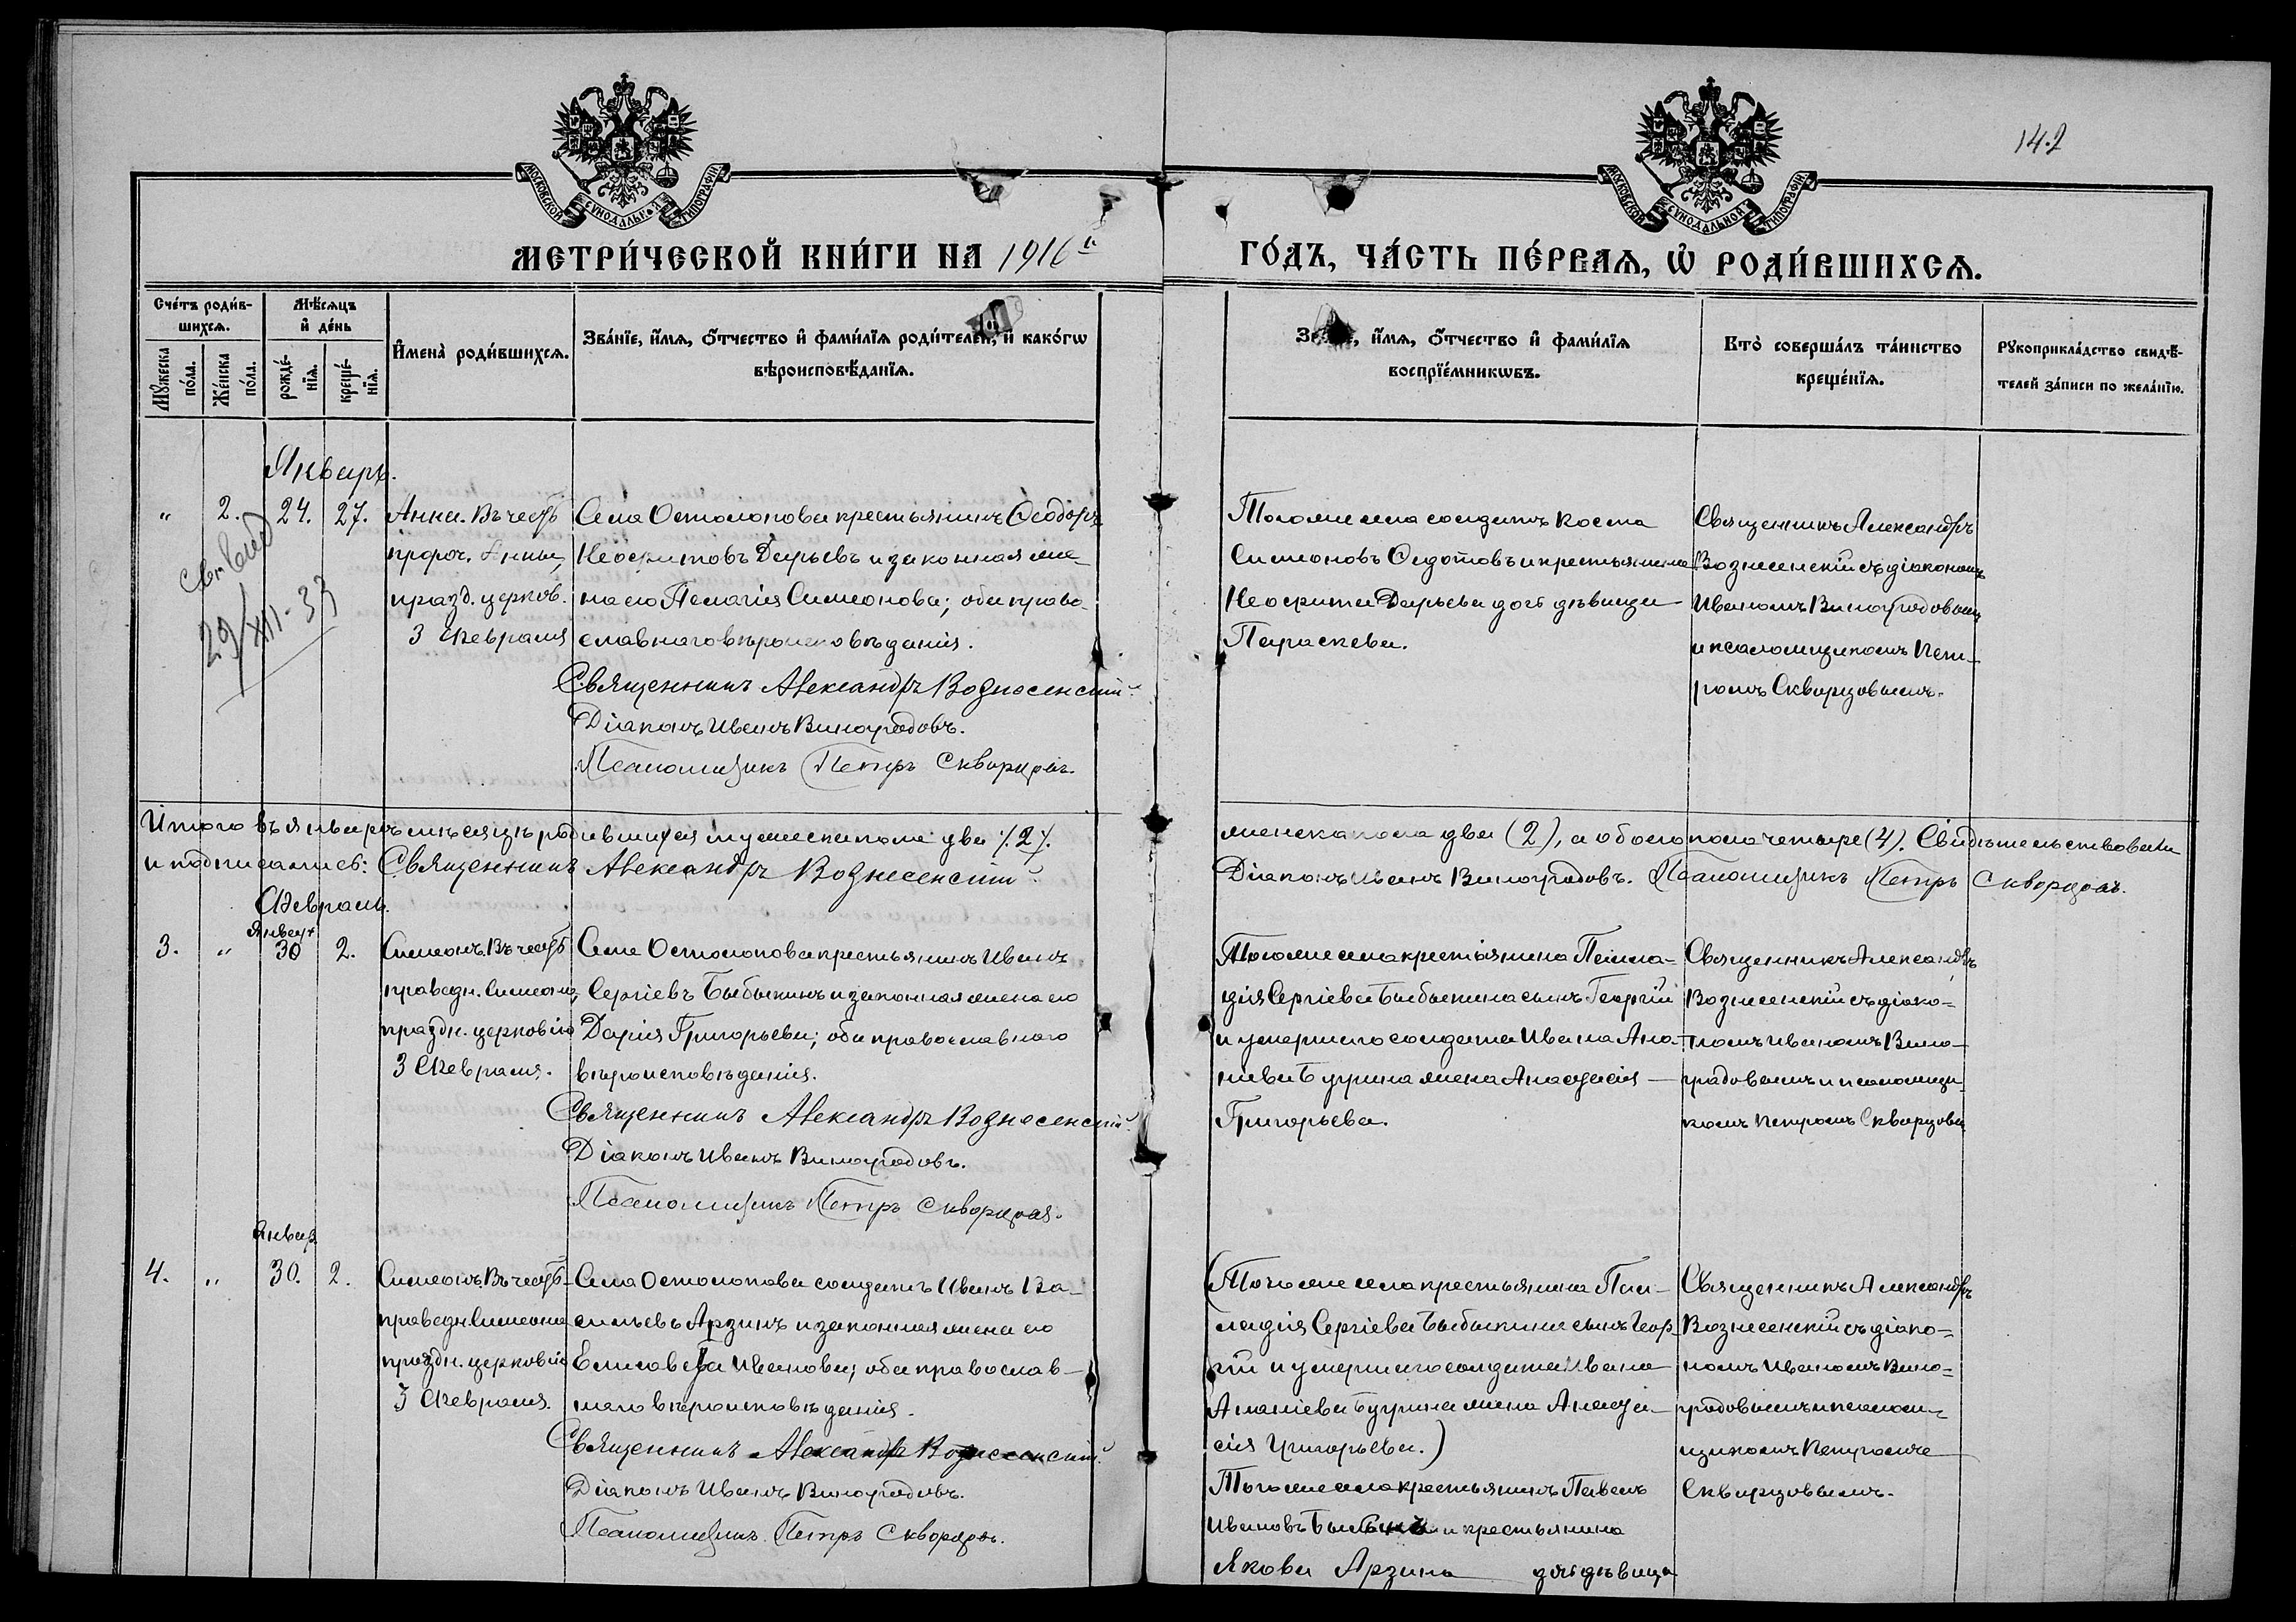 142
МОСКОВСКОЙ СУНОДАЛЬНОЙ ТИПОГРАФІИ
МОСКОВСКОЙ СУНОДАЛЬНОЙ ТИПОГРАФІИ
МЕТРИ́ЧЕСКОЙ КНИ́ГИ НА 1916й
ГО́ДЪ, ЧА́СТЬ ПЕ́РВАѦ, Ѡ҆ РОДИ́ВШИХСѦ.
Сче́тъ роди́в-
шихсѧ.
Мꙋжеска
по́ла.
Же́нска
по́ла.
Мѣ́сѧцъ
и҆ де́нь
рожде́-
нїѧ.
креще́-
нїѧ.
И҆мена̀ роди́вшихсѧ.
Зва́нїе, и҆́мѧ, ѻ҆́тчество и҆ фами́лїѧ роди́телей, и҆ како́гѡ
вѣроисповѣ́данїѧ.
и҆́мѧ, ѻ҆́тчество и҆ фами́лїѧ
воспрїе́мникѡвъ.
Кто̀ соверша́лъ та́инство
креще́нїѧ.
Рꙋкоприкла́дство свидѣ́-
телей за́писи по жела́нїю.
Январь.
„ 2. 24. 27.
29/XII-33
Анна. Въ честь
пророч. Анны,
празд. церков.
3 Февраля
Села Остолопова крестьянинъ Ѳеодоръ
Неофитовъ Дарьевъ и законная же-
на его Пелагія Симеонова; оба право-
славнаго вѣроисповѣданія.
Священникъ Александръ Вознесенскій
Діаконъ Иванъ Виноградовъ.
Псаломщикъ Петръ Скворцовъ.
Тогоже села солдатъ Косма
Симеоновъ Федотовъ и крестьянина
Неофита Дарьева дочь дѣвица
Параскева.
Священникъ Александръ
Вознесенскій съ діакономъ
Иваномъ Виноградовымъ
и псаломщикомъ Пет-
ромъ Скворцовымъ.
Итого въ январѣ мѣсяцѣ родившихся мужеска пола два /2/.
женска пола два (2), а обоего пола четыре (4). Свидѣтельствовали
и подписались: Священникъ Александръ Вознесенскій
Діаконъ Иванъ Виноградовъ. Псаломщикъ Петръ Скворцовъ.
Февраль.
Январ
3. „ 30 2.
Симеонъ. Въ честь
праведн. Симеона,
праздн. церковію
3 Февраля.
Села Остолопова крестьянинъ Иванъ
Сергіевъ Бабыкинъ и законная жена его
Дарія Григорьева; оба православнаго
вѣроисповѣданія.
Священникъ Александръ Вознесенскій
Діаконъ Иванъ Виноградовъ.
Псаломщикъ Петръ Скворцовъ.
Тогоже села крестьянина Палла-
дія Сергіева Бабыкина сынъ Георгій
и умершаго солдата Ивана Ана-
ніева Бурина жена Анастасія
Григорьева.
Священникъ Александръ
Вознесенскій съ діако-
номъ Иваномъ Вино-
градовымъ и псаломщи-
комъ Петромъ Скворцовы
Январ.
4. „ 30. 2.
Симеонъ. Въ честь
праведн. Симеона
праздн. церковію
3 Февраля.
Села Остолопова солдатъ Иванъ Ва-
сильевъ Арзинъ и законная жена его
Елисавета Иванова; оба православ-
наго вѣроисповѣданія.
Священникъ Александръ Вознесенскій
Діаконъ Иванъ Виноградовъ.
Псаломщикъ Петръ Скворцовъ.
(Тогоже села крестьянина Пал-
ладія Сергіева Бабыкина сынъ Геор-
гій и умершаго солдата Ивана
Ананіева Бурина жена Анаста-
сія Григорьева.)
Тогоже села крестьянинъ Павелъ
Ивановъ и крестьянина
Якова Арзина дочь дѣвица
Священникъ Александръ
Вознесенскій съ діако-
номъ Иваномъ Вино-
градовымъ и псалом-
щикомъ Петромъ
Скворцовымъ.